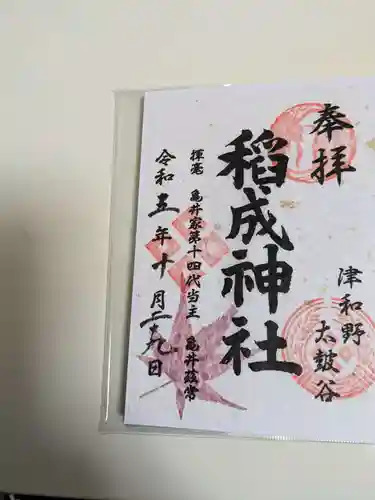 奉拝
津和野
太皷谷
稲成神社
揮毫 亀井家第十四代当主 亀井茲常
令和五年十月二十九日